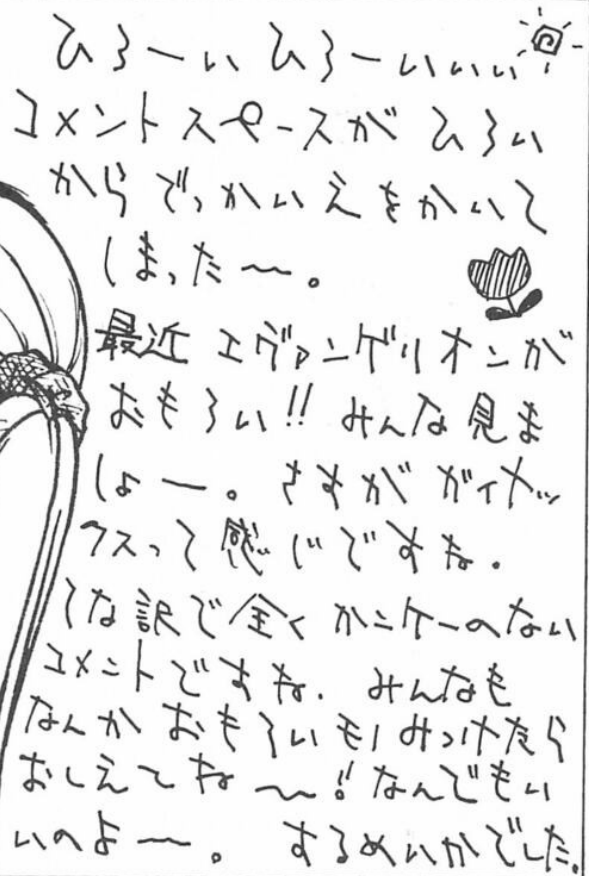 ひろーぃ ひろーぃぃぃ
コメントスペースが ひろい
から でっかいえをかいて
しまった〜。
最近 エヴァンゲリオンが
おもろい!! みんな見ま
しょー。さすが ガイナッ
クスって感じですね。
てな訳で全く カンケーのない
コメントですね. みんなも
なんか おもろいモノみつけたら
おしえてね〜!なんでもい
いのよー。 するめいかでした.